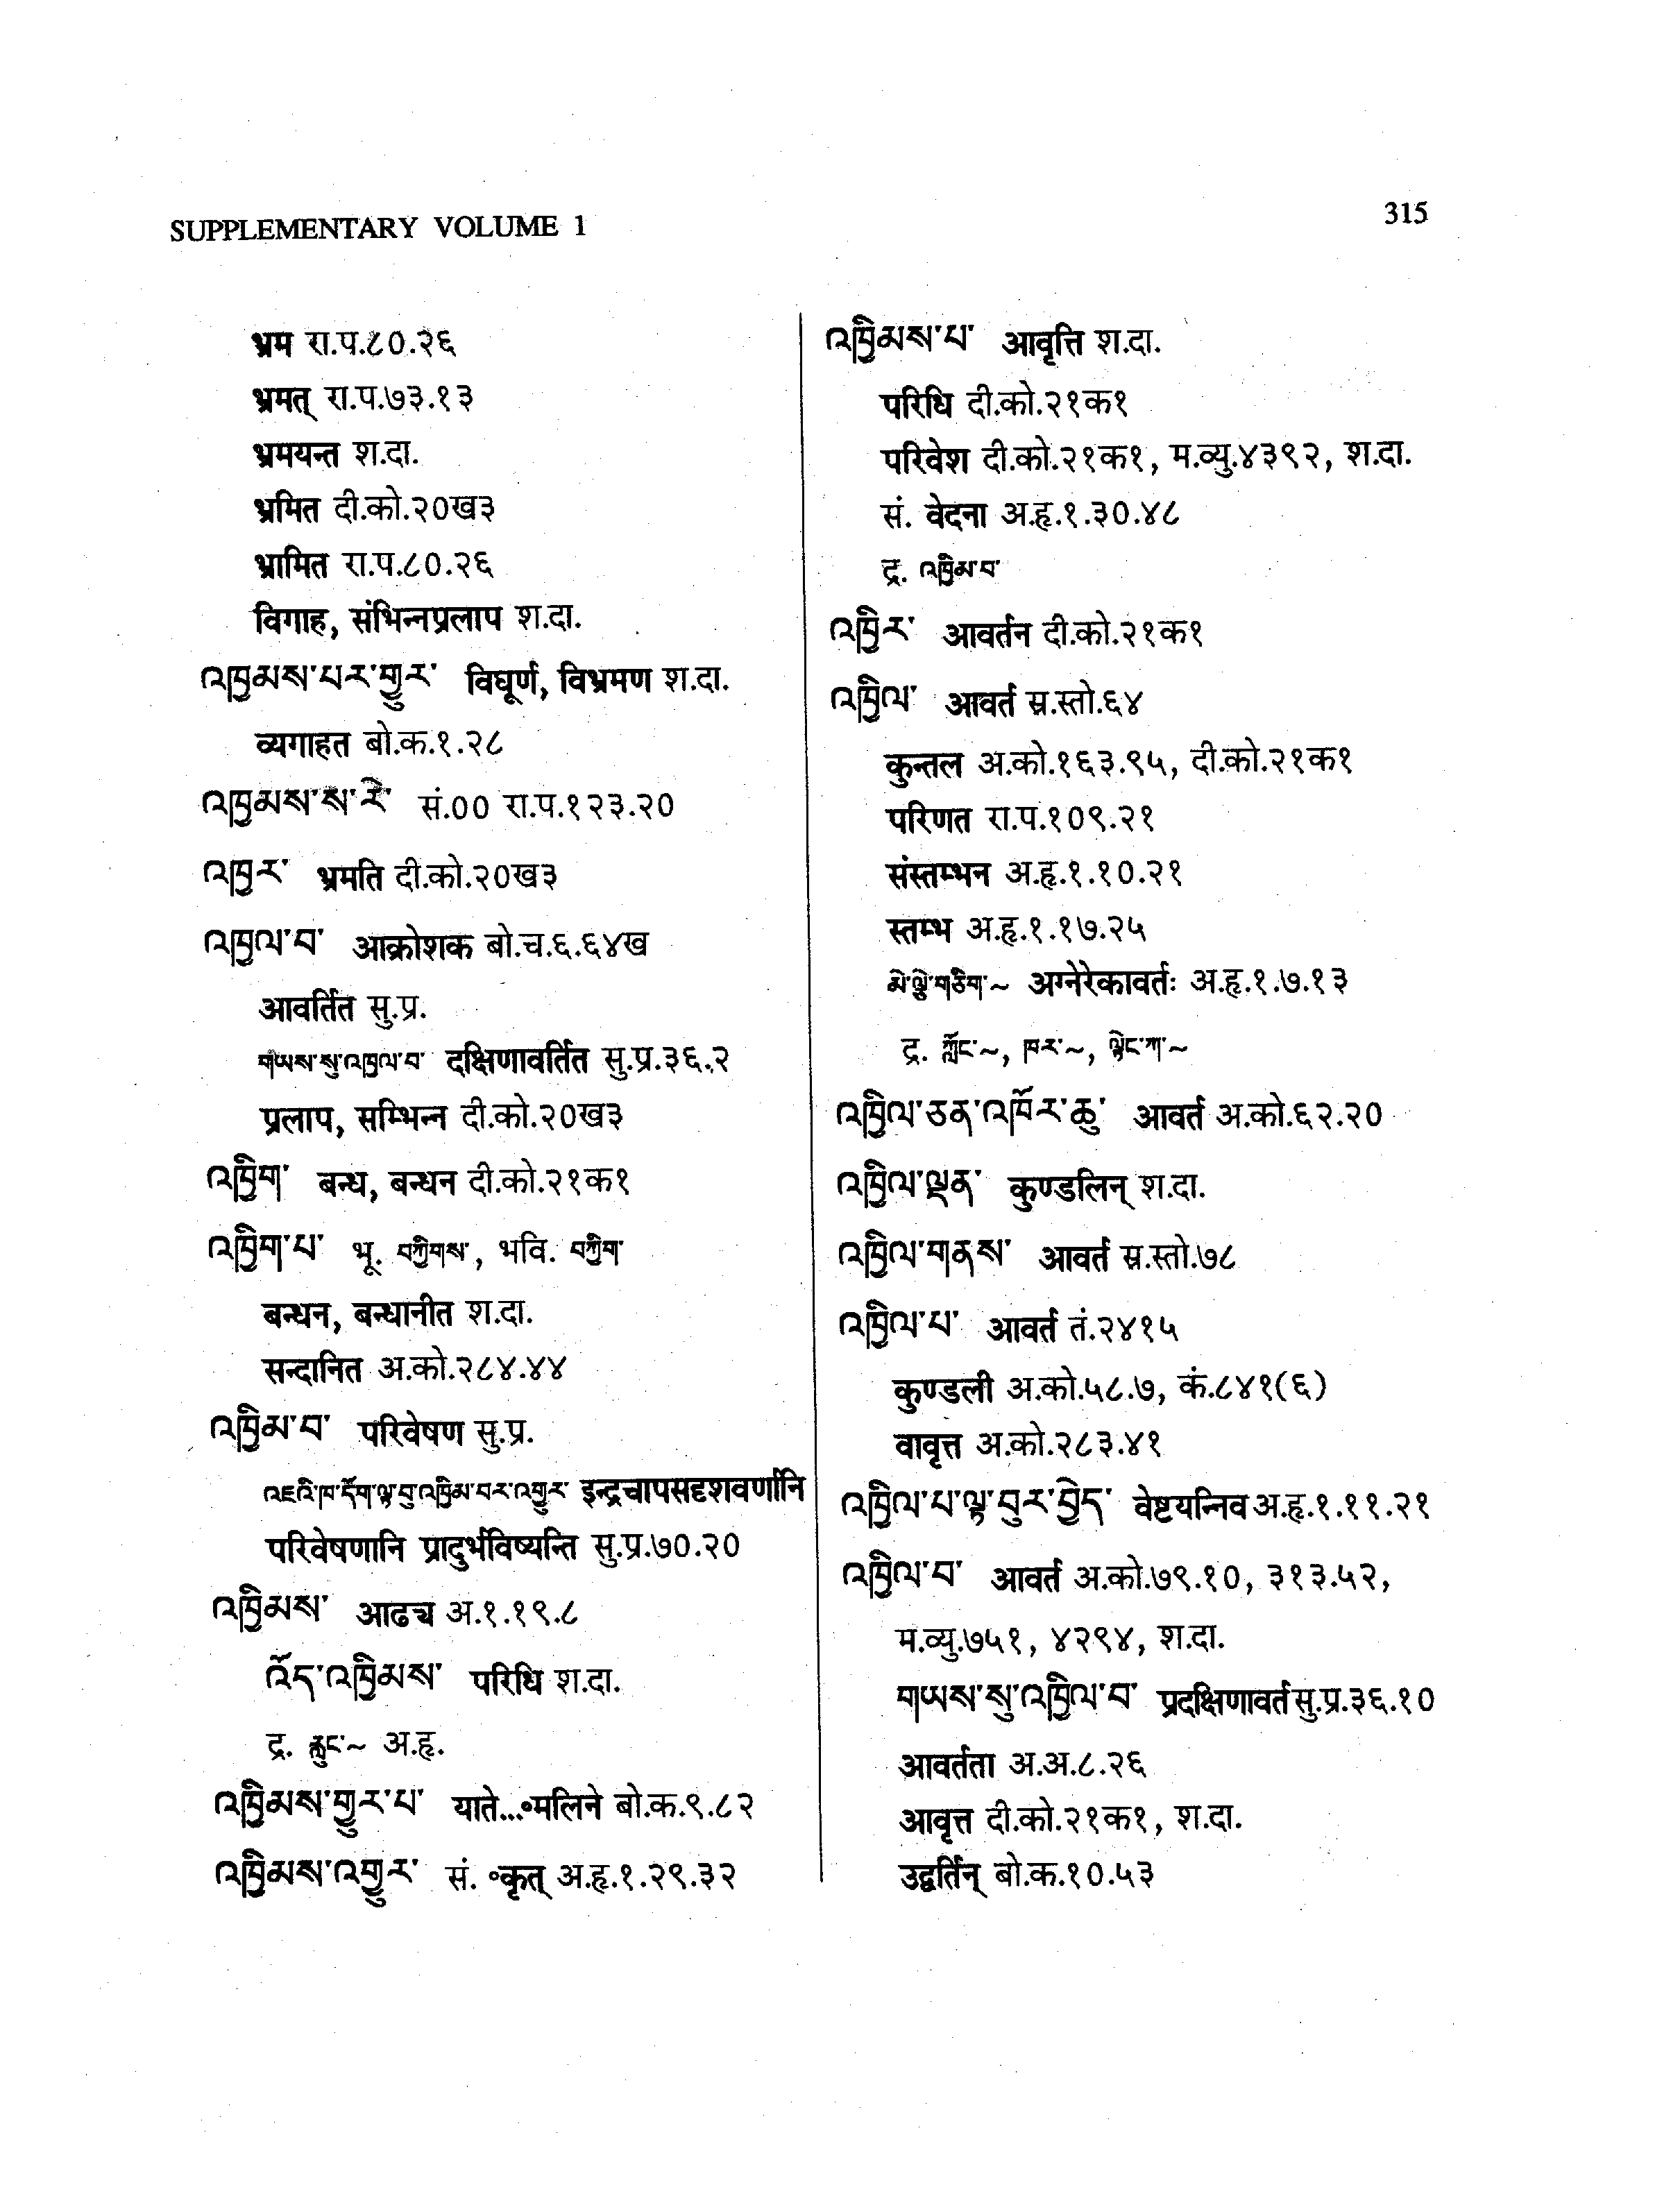 SUPPLEMENTARY VOLUME 1
315
भ्रम रा.प.८०.२६
भ्रमत् रा.प.७३.१३
भ्रमयन्त श.दा.
भ्रमित दी.को.२०ख३
भ्रामित रा.प.८०.२६
विगाह, संभिन्नप्रलाप श.दा.
འཁྱམས་པར་གྱུར་ विघूर्ण, विभ्रमण श.दा.
व्यगाहत बो.क.१.२८
འཁྱམས་ས་རེ་ सं.०० रा.प.१२३.२०
འཁྱར་ भ्रमति दी.को.२०ख३
འཁྱལ་བ་ आक्रोशक बो.च.६.६४ख
आवर्तित सु.प्र.
གཡས་སུ་འཁྱལ་བ་ दक्षिणावर्तित सु.प्र.३६.२
प्रलाप, सम्भिन्न दी.को.२०ख३
འཁྱིག་ बन्ध, बन्धन दी.को.२१क१
འཁྱིག་པ་ भू. བཀྱིགས་, भवि. བཀྱིག་
बन्धन, बन्धानीत श.दा.
सन्दानित अ.को.२८४.४४
འཁྱིམ་བ་ परिवेषण सु.प्र.
འཇའི་ཁ་དོག་ལྟ་བུ་འཁྱིམ་བར་འགྱུར་ इन्द्रचापसदृशवर्णानि
परिवेषणानि प्रादुर्भविष्यन्ति सु.प्र.७०.२०
འཁྱིམས་ आढ्य अ.१.१९.८
འོད་འཁྱིམས་ परिधि श.दा.
द्र. རླུང་~ अ.हृ.
འཁྱིམས་གྱུར་པ་ याते...॰मलिने बो.क.९.८२
འཁྱིམས་འགྱུར་ सं. ॰कृत् अ.हृ.१.२९.३२
འཁྱིམས་པ་ आवृत्ति श.दा.
परिधि दी.को.२१क१
परिवेश दी.को.२१क१, म.व्यु.४३९२, श.दा.
सं. वेदना अ.हृ.१.३०.४८
द्र. འཁྱིམ་བ་
འཁྱིར་ आवर्तन दी.को.२१क१
འཁྱིལ་ आवर्त स्र.स्तो.६४
कुन्तल अ.को.१६३.९५, दी.को.२१क१
परिणत रा.प.१०९.२१
संस्तम्भन अ.हृ.१.१०.२१
स्तम्भ अ.हृ.१.१७.२५
མེ་ལྕེ་གཅིག་~ अग्नेरेकावर्तः अ.हृ.१.७.१३
द्र. ཀློང་~, ཁར་~, ལྟེང་ཀ་~
འཁྱིལ་ཅན་འཁོར་ཆུ་ आवर्त अ.को.६२.२०
འཁྱིལ་ལྡན་ कुण्डलिन् श.दा.
འཁྱིལ་གནས་ आवर्त स्र.स्तो.७८
འཁྱིལ་པ་ आवर्त तं.२४१५
कुण्डली अ.को.५८.७, कं.८४१(६)
वावृत्त अ.को.२८३.४१
འཁྱིལ་པ་ལྟ་བུར་བྱེད་ वेष्टयन्निव अ.हृ.१.११.२१
འཁྱིལ་བ་ आवर्त अ.को.७९.१०, ३१३.५२,
म.व्यु.७५१, ४२९४, श.दा.
གཡས་སུ་འཁྱིལ་བ་ प्रदक्षिणावर्त सु.प्र.३६.१०
आवर्तता अ.अ.८.२६
आवृत्त दी.को.२१क१, श.दा.
उद्वर्तिन् बो.क.१०.५३